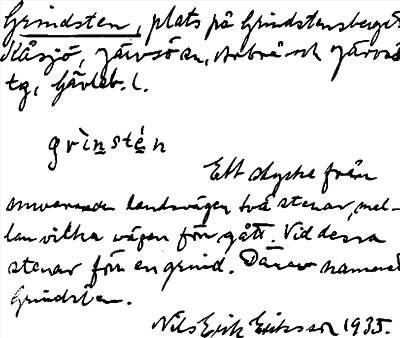 Grindsten, plats på Grindstensberget
Kåsjö, Järvsö sn, Arbrå och Järvsö
tg, Gävleb. l.
grinstén
Ett stycke från
nuvarande landsvägen två stenar, mel-
lan vilka vägen förr gått. Vid dessa
stenar förr en grind. Därav namnet
Grindsten.
Nils Erik Eriksson 1935.